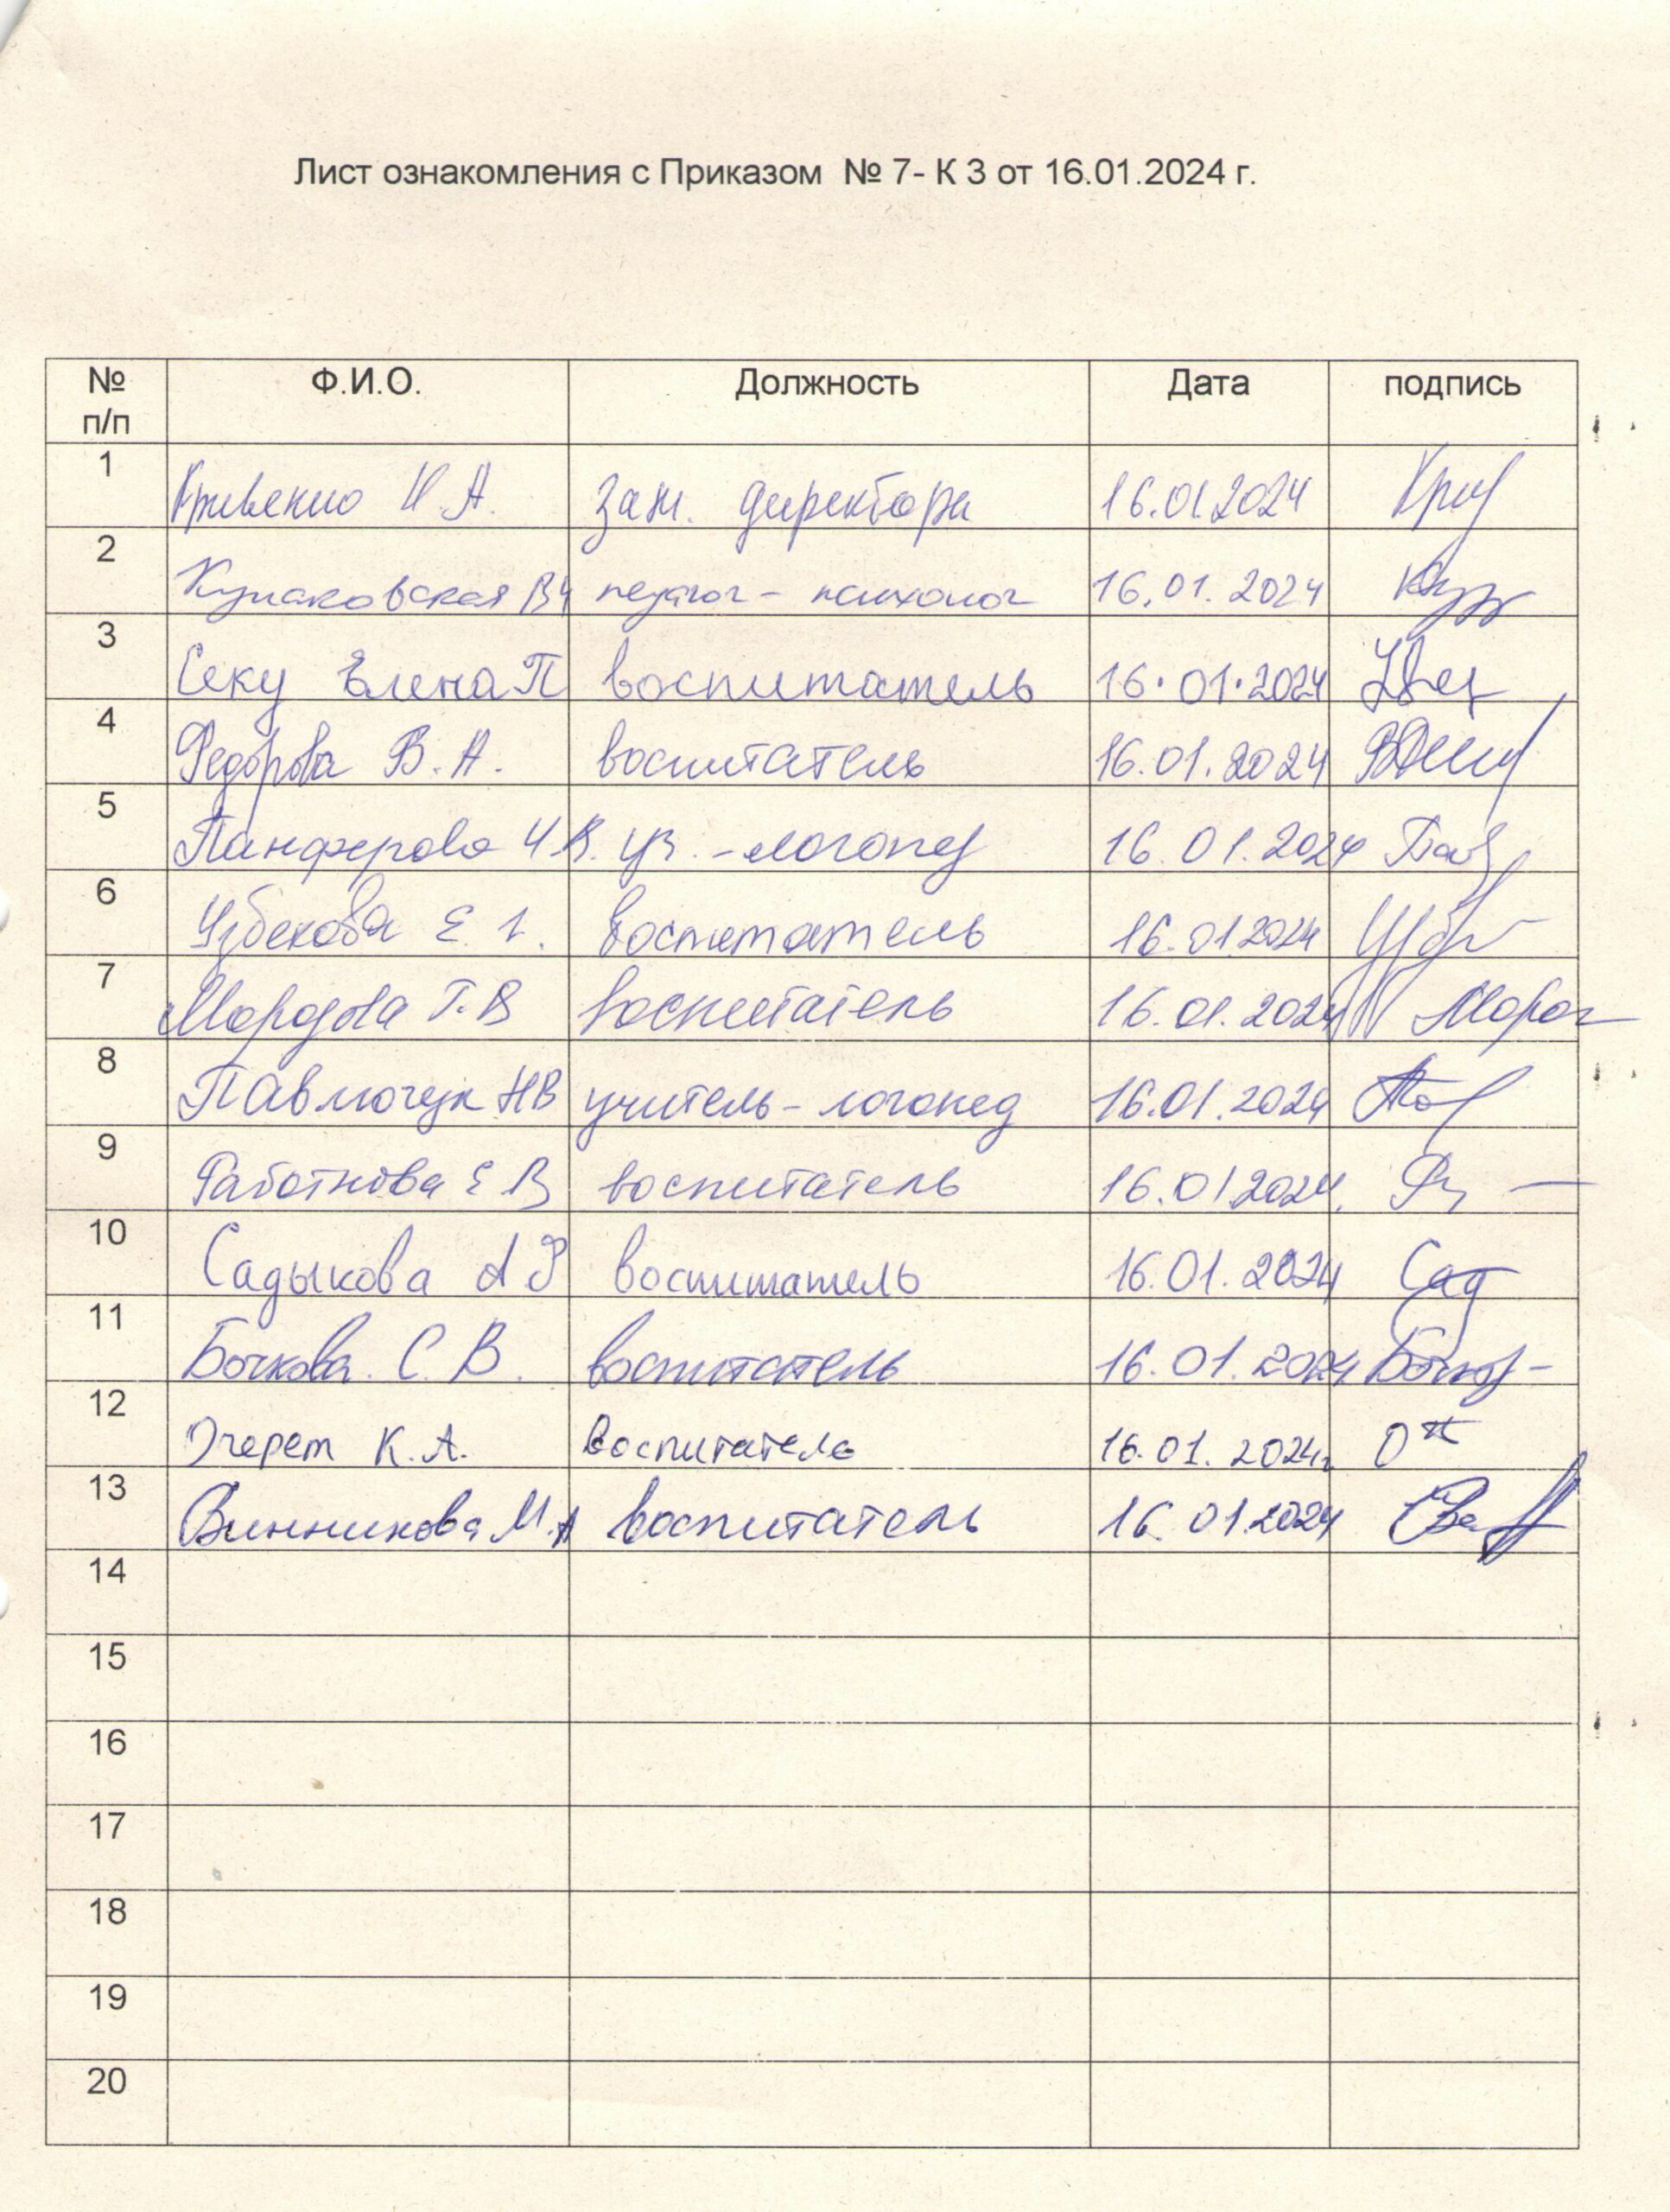 Лист ознакомления с Приказом № 7- К 3 от 16.01.2024 г.
№ п/п Ф.И.О. Должность Дата подпись
1 Кривенко И.А. зам. директора 16.01.2024
2 педагог - психолог 16.01.2024
3 Секу Елена П воспитатель 16.01.2024
4 Федорова В.А. воспитатель 16.01.2024
5 Панферова И.В. уч. - логопед 16.01.2024
6 Узбекова Е. воспитатель 16.01.2024
7 Т.В воспитатель 16.01.2024
8 Павлючук НВ учитель - логопед 16.01.2024
9 Работнова Е В воспитатель 16.01.2024
10 Садыкова А Р воспитатель 16.01.2024 Сад
11 Бочкова. С. В. воспитатель 16.01.2024
12 Очерет К.А. Воспитатель 16.01.2024г.
13 Винникова М.А воспитатель 16.01.2024
14
15
16
17
18
19
20